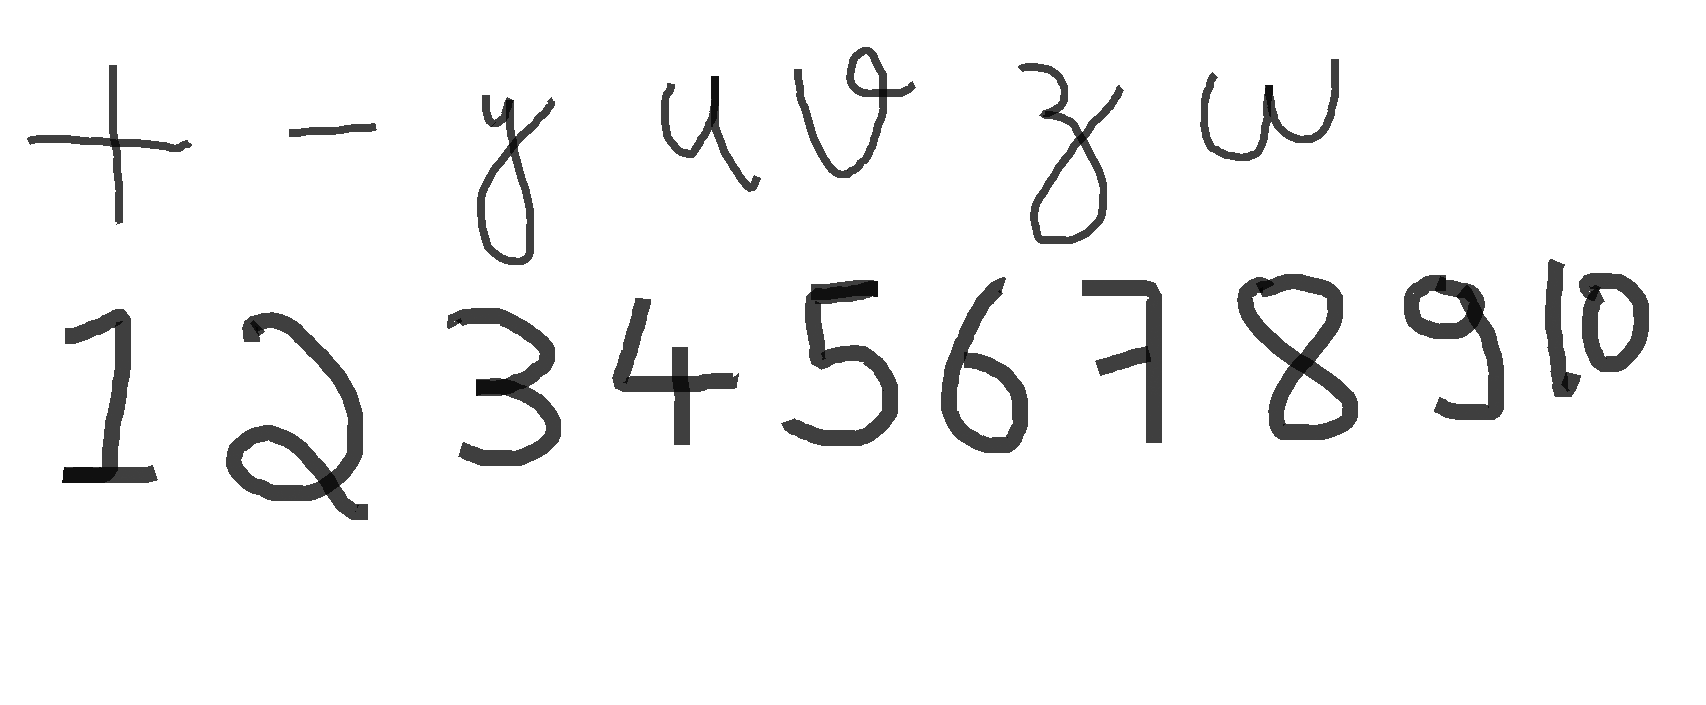 + - y u v z w
1 2 3 4 5 6 7 8 9 10